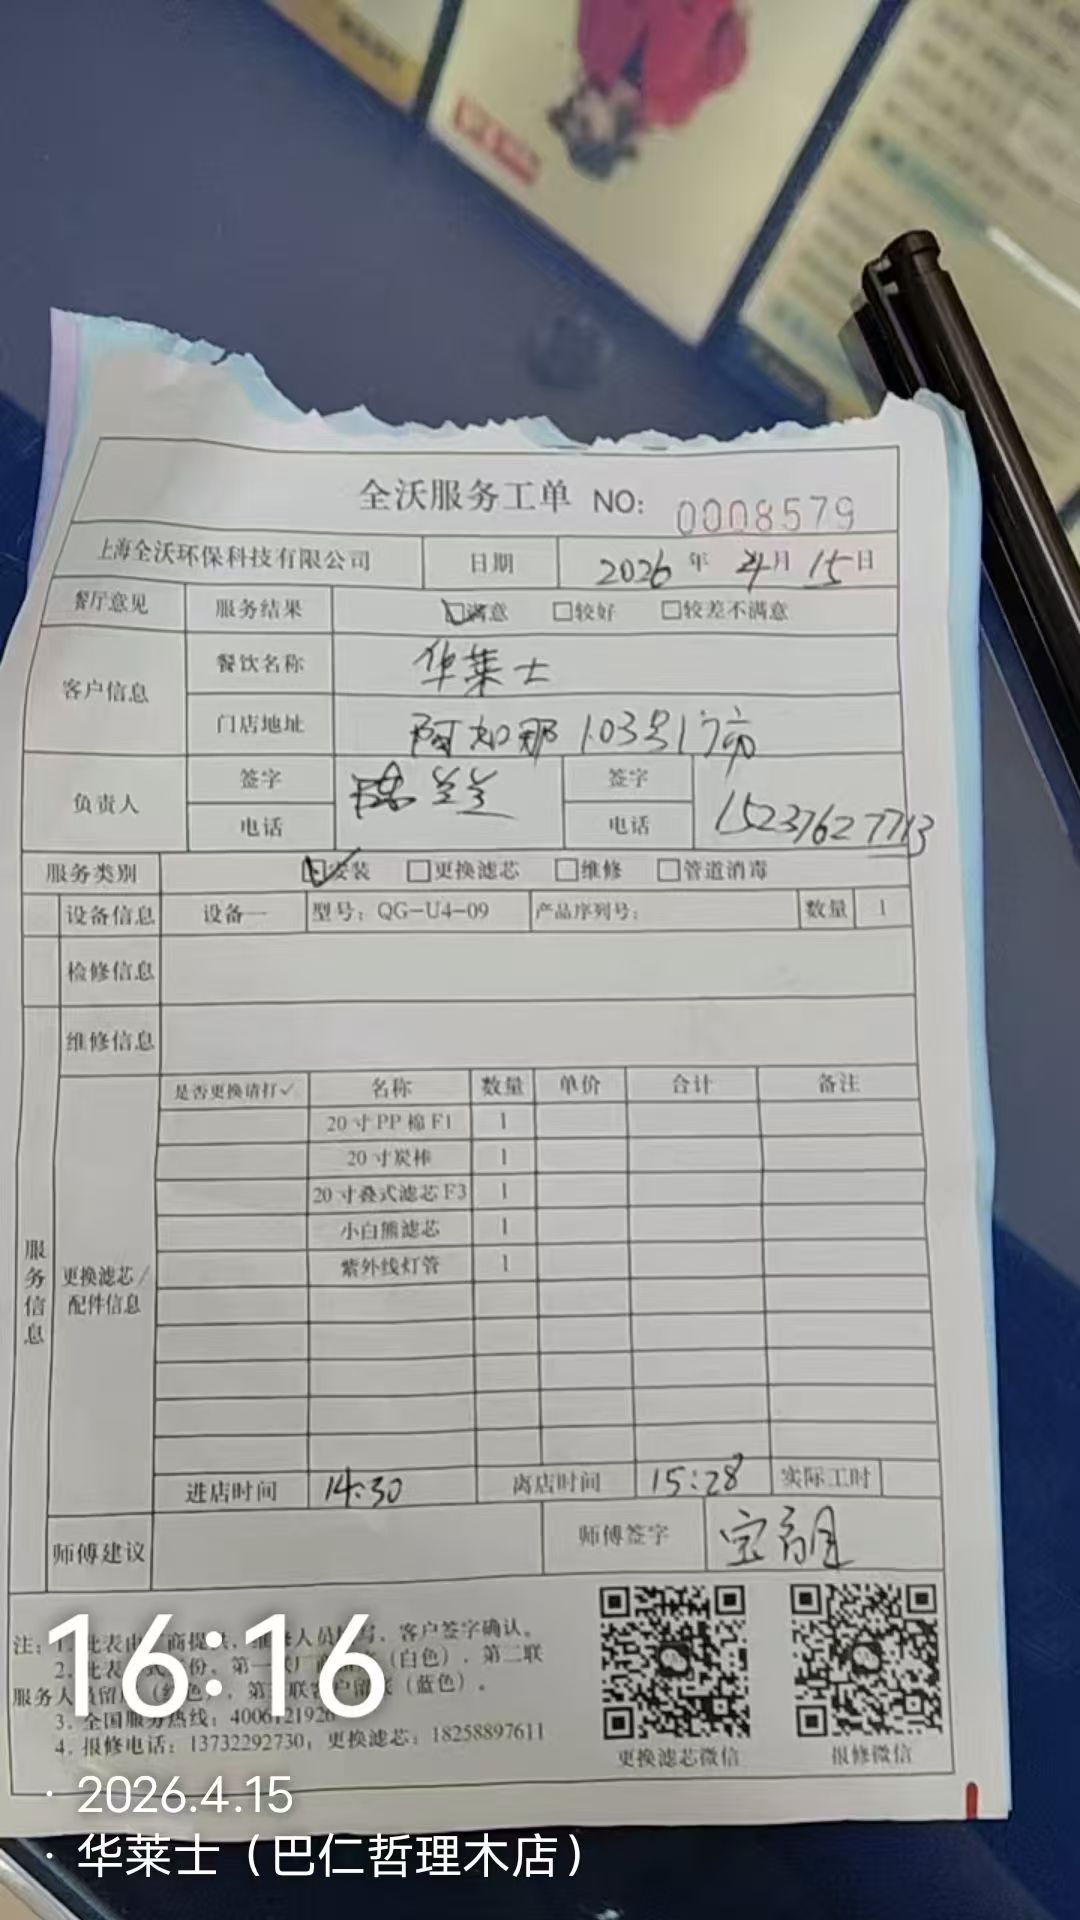 全沃服务工单 NO: 0008579
上海全沃环保科技有限公司 日期 2026年4月15日
餐厅意见 服务结果 ☑满意 □较好 □较差不满意
客户信息 餐饮名称 华莱士
门店地址 阿如那103号门市
负责人 签字 签字
电话 电话 15237627713
服务类别 ☑安装 □更换滤芯 □维修 □管道消毒
设备信息 设备一 型号：QG-U4-09 产品序列号： 数量 1
检修信息
维修信息
是否更换请打✓ 名称 数量 单价 合计 备注
20寸PP棉F1 1
20寸炭棒 1
20寸叠式滤芯F3 1
小白熊滤芯 1
紫外线灯管 1
服务信息
更换滤芯/
配件信息
进店时间 14:30 离店时间 15:28 实际工时
师傅建议 师傅签字
注：1. 此表由厂商提供，维修人员填写，客户签字确认。
2. 此表 式 份，第一联厂商 （白色），第二联
服务人员留 （红色），第三联客户留 （蓝色）。
3. 全国服务热线：4006121926
4. 报修电话：13732292730，更换滤芯：18258897611
更换滤芯微信 报修微信
16:16
· 2026.4.15
· 华莱士（巴仁哲理木店）